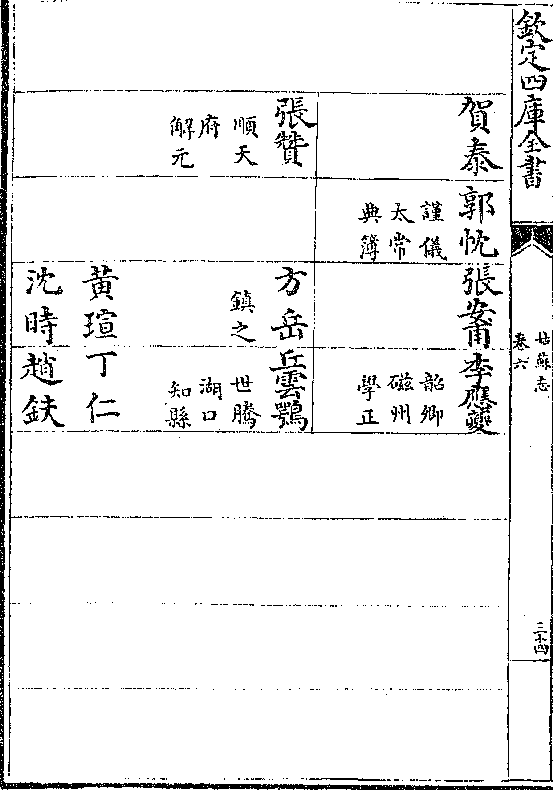 欽定四庫全書
姑蘇志
卷六
三十四
賀泰
郭忱
謹儀
太常
典簿
張安甫
李應夔
韶卿
磁州
學正
張贊
順天
府
解元
方岳
鎮之
丘雲鶚
世騰
湖口
知縣
黃瑄
丁仁
沈時
趙鈇